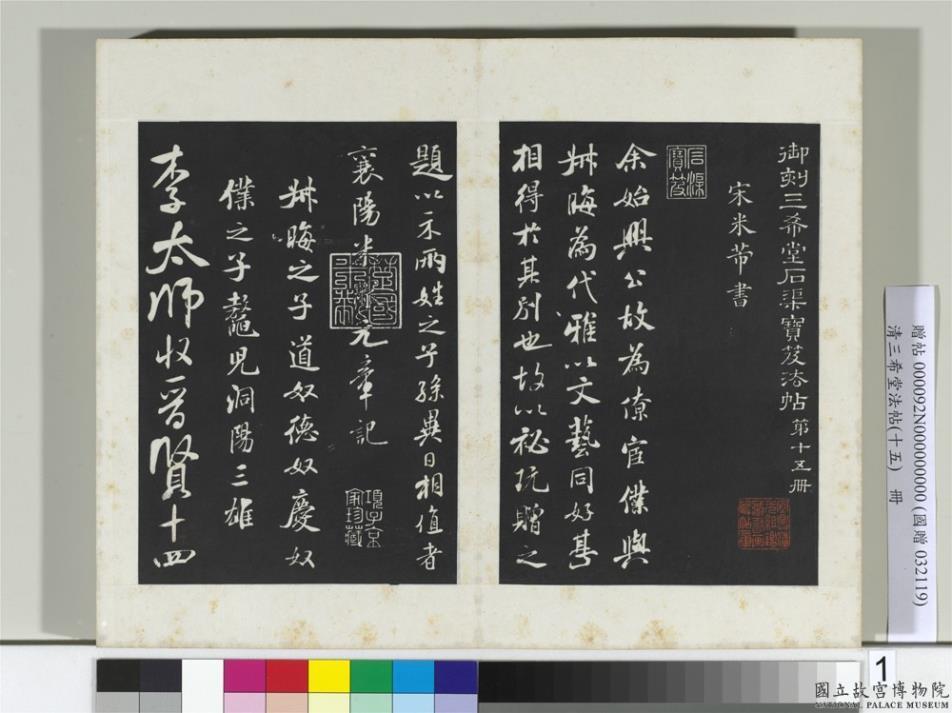 御刻三希堂石渠寶笈法帖第十五冊
宋米芾書
石渠寶笈
余始興公故為僚宦僕與
叔晦為代雅以文藝同好甚
相得於其別也故以祕玩贈之
題以示兩姓之子孫異日相值者
襄陽米黻元章記
項子京家珍藏
叔晦之子道奴德奴慶奴
僕之子鼇兒洞陽三雄
李太師收晉賢十四
贈帖 000092N000000000 (國贈 032119)
清三希堂法帖(十五) 冊
1
國立故宮博物院
NATIONAL PALACE MUSEUM